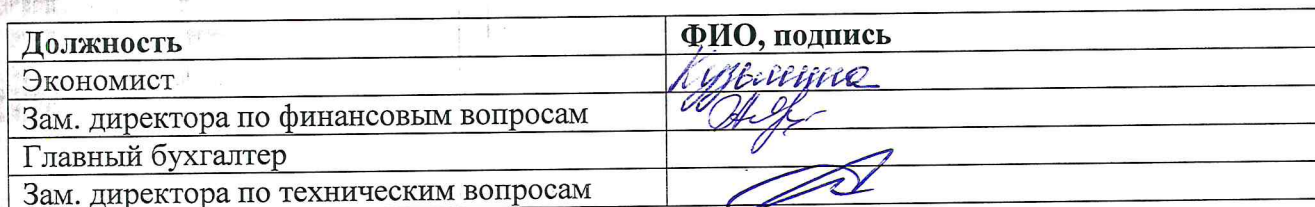 Должность ФИО, подпись
Экономист Кузьмина
Зам. директора по финансовым вопросам
Главный бухгалтер
Зам. директора по техническим вопросам